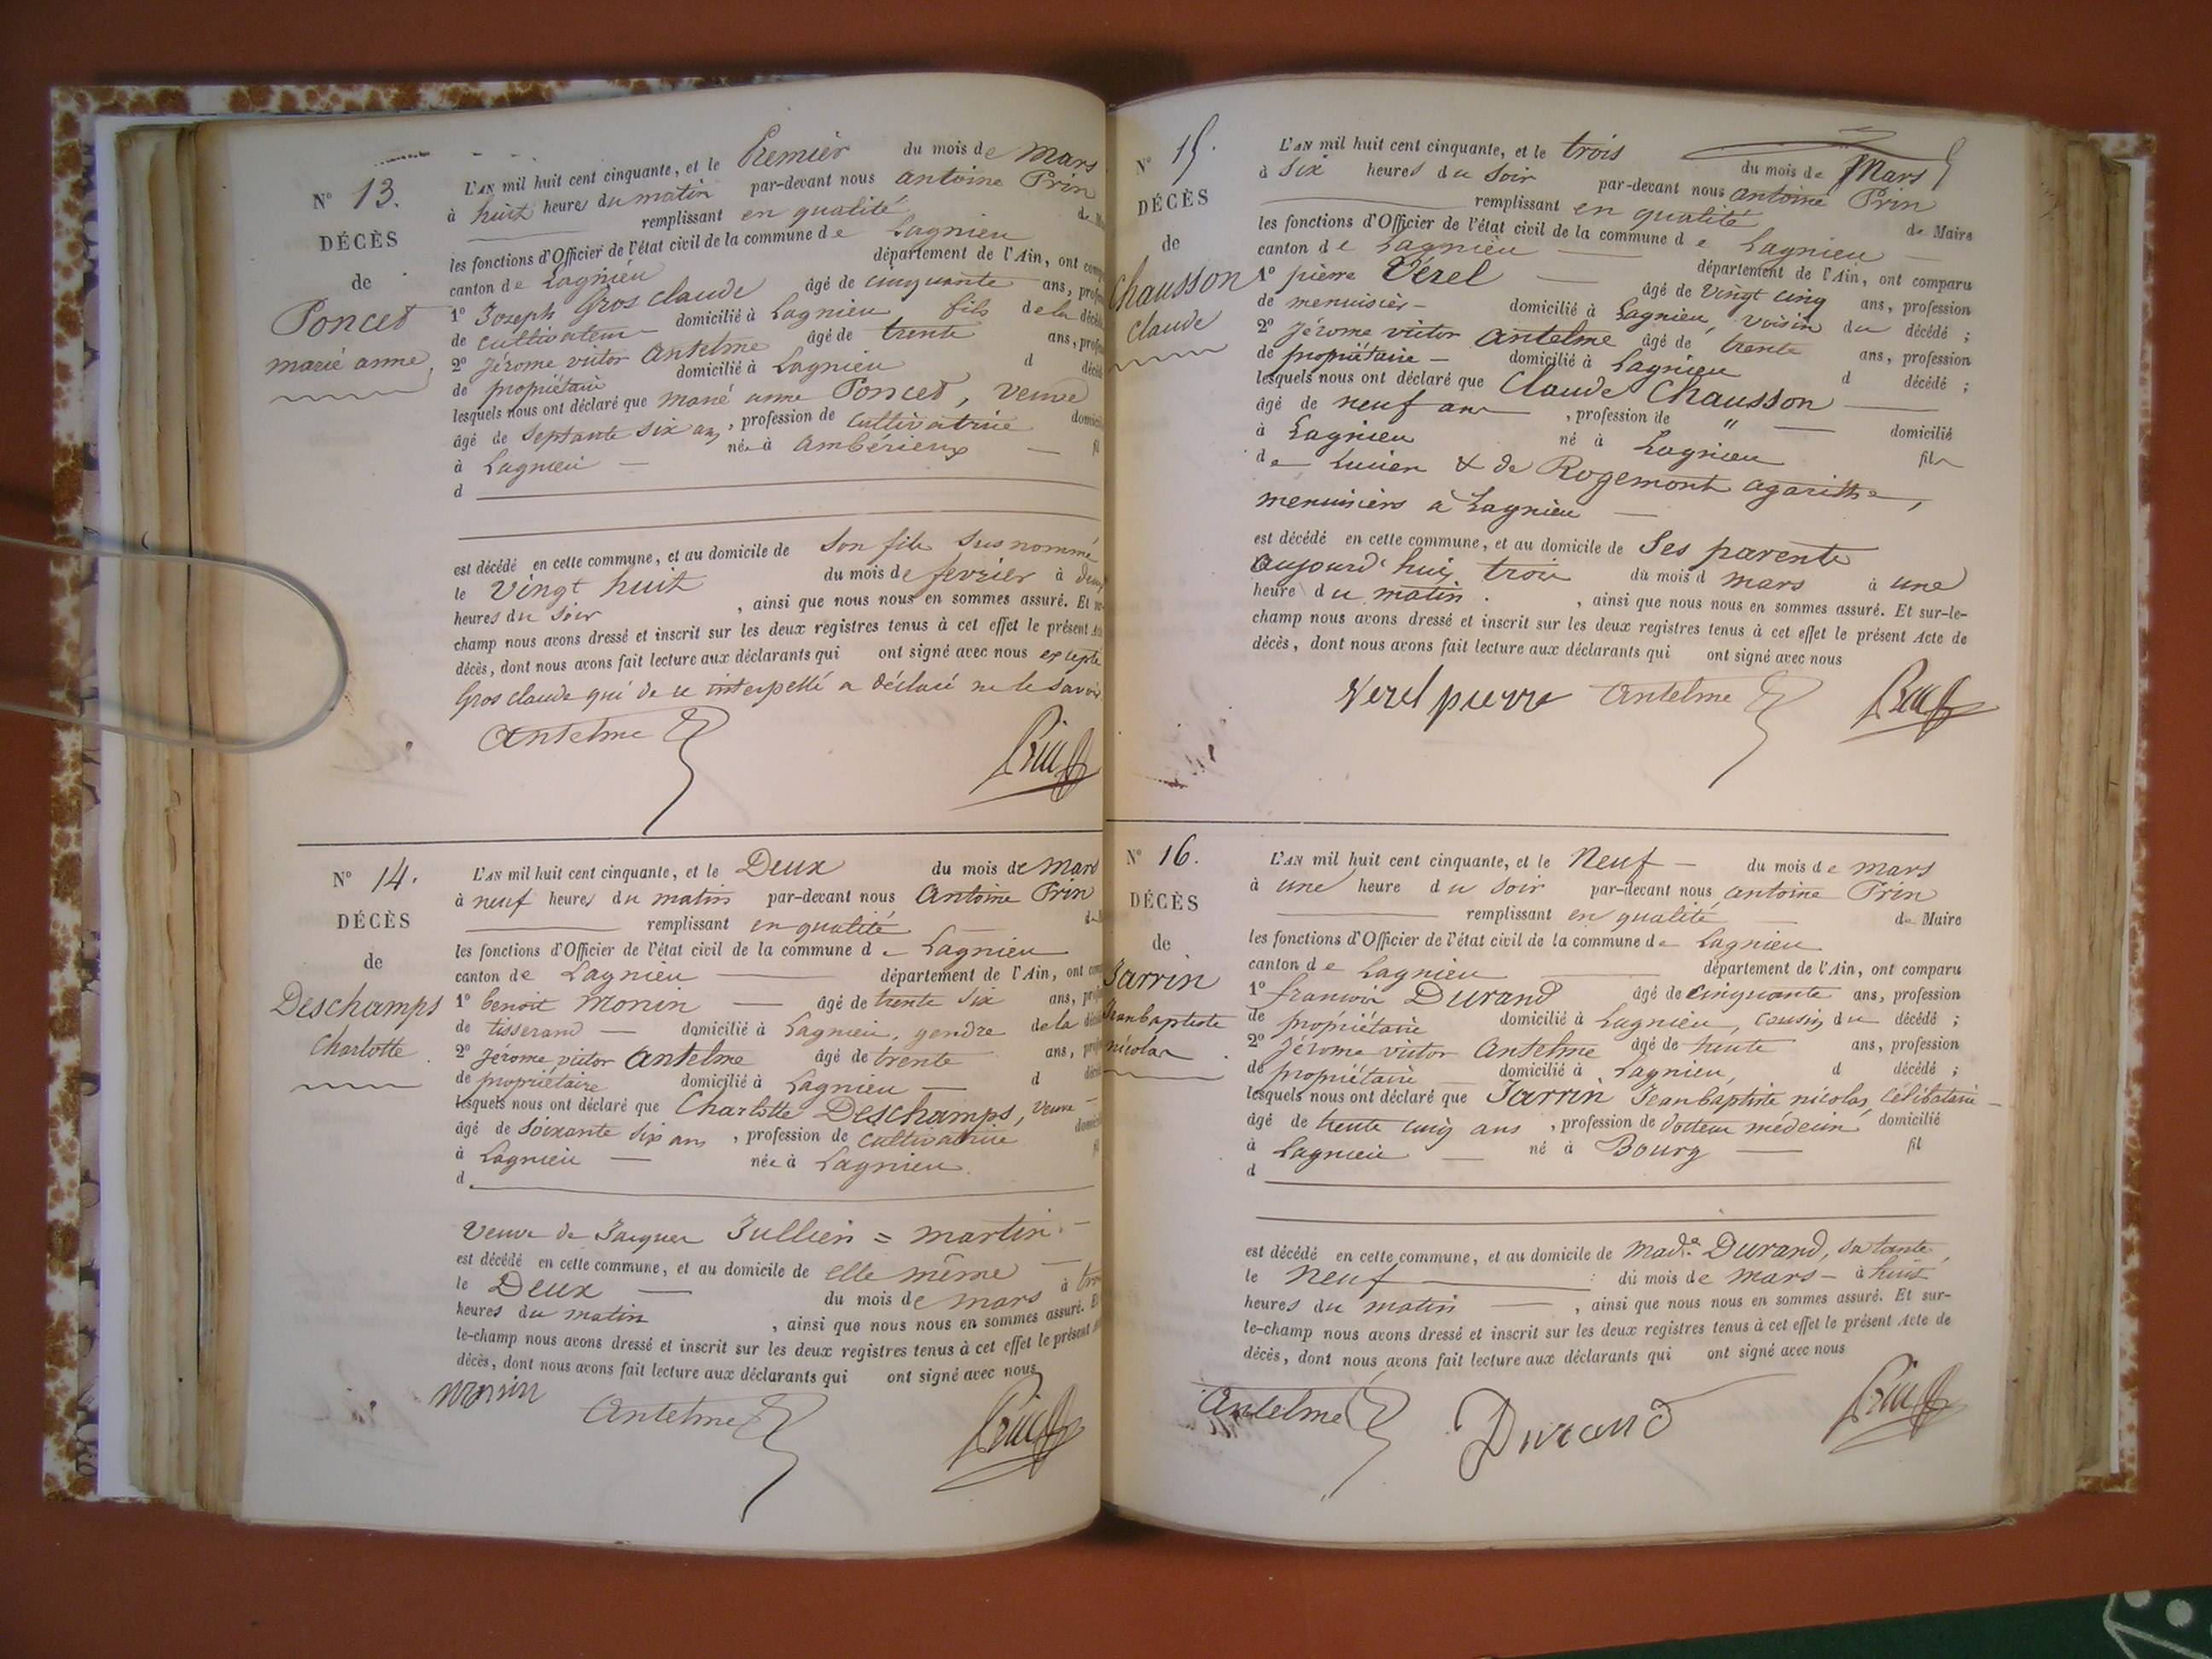 N° 13.
DÉCÈS
de
Poncet
marie anne
L'AN mil huit cent cinquante, et le Premier du mois de Mars
à huit heures du matin par-devant nous antoine Prin
remplissant en qualité de
les fonctions d'Officier de l'état civil de la commune de Lagnieu
canton de Lagnieu département de l'Ain, ont
1° Joseph Gros claude âgé de cinquante ans,
de cultivateur domicilié à Lagnieu fils de la
2° Jérome victor Antelme âgé de trente ans,
de propriétaire domicilié à Lagnieu d
lesquels nous ont déclaré que marie anne Poncet, veuve
âgé de septante six ans, profession de cultivatrice
à Lagnieu — née à ambérieux —
d
est décédé en cette commune, et au domicile de son fils susnommé
le vingt huit du mois de février à
heures du soir, ainsi que nous nous en sommes assuré. Et
champ nous avons dressé et inscrit sur les deux registres tenus à cet effet le présent
décès, dont nous avons fait lecture aux déclarants qui ont signé avec nous excepté
Gros claude qui de ce interpellé a déclaré ne le savoir
Antelme Prin
N° 14.
DÉCÈS
de
Deschamps
Charlotte
L'AN mil huit cent cinquante, et le Deux du mois de Mars
à neuf heures du matin par-devant nous Antoine Prin
remplissant en qualité
les fonctions d'Officier de l'état civil de la commune de Lagnieu
canton de Lagnieu département de l'Ain, ont
1° benoit Monin — âgé de trente six ans,
de tisserand — domicilié à Lagnieu, gendre de la
2° Jérome victor Antelme âgé de trente ans,
de propriétaire domicilié à Lagnieu — d
lesquels nous ont déclaré que Charlotte Deschamps, veuve
âgé de soixante six ans, profession de cultivatrice
à Lagnieu — née à Lagnieu
d
veuve de Jacques Jullien = martin
est décédé en cette commune, et au domicile de elle même
le Deux — du mois de mars à
heures du matin, ainsi que nous nous en sommes assuré.
le-champ nous avons dressé et inscrit sur les deux registres tenus à cet effet le présent
décès, dont nous avons fait lecture aux déclarants qui ont signé avec nous
monin Antelme Prin
N° 15.
DÉCÈS
de
Chausson
claude
L'AN mil huit cent cinquante, et le trois du mois de Mars
à six heures du soir par-devant nous antoine Prin
remplissant en qualité de Maire
les fonctions d'Officier de l'état civil de la commune de Lagnieu
canton de Lagnieu — département de l'Ain, ont comparu
1° pierre Vérel — âgé de vingt cinq ans, profession
de menuisier — domicilié à Lagnieu, voisin du décédé ;
2° Jérome victor antelme âgé de trente ans, profession
de propriétaire — domicilié à Lagnieu d décédé ;
lesquels nous ont déclaré que Claude Chausson
âgé de neuf ans, profession de " — domicilié
à Lagnieu né à Lagnieu fils
de Lucien & de Rogemont agarithe,
menuisiers à Lagnieu —
est décédé en cette commune, et au domicile de ses parents
aujourd'hui trois du mois d mars à une
heure du matin, ainsi que nous nous en sommes assuré. Et sur-le-
champ nous avons dressé et inscrit sur les deux registres tenus à cet effet le présent Acte de
décès, dont nous avons fait lecture aux déclarants qui ont signé avec nous
Verel pierre Antelme Prin
N° 16.
DÉCÈS
de
Jarrin
Jeanbaptiste
nicolas
L'AN mil huit cent cinquante, et le Neuf — du mois de mars
à une heure du soir par-devant nous antoine Prin
remplissant en qualité de Maire
les fonctions d'Officier de l'état civil de la commune de Lagnieu
canton de Lagnieu département de l'Ain, ont comparu
1° francois Durand âgé de cinquante ans, profession
de propriétaire domicilié à Lagnieu, cousin du décédé ;
2° Jérome victor Antelme âgé de trente ans, profession
de propriétaire domicilié à Lagnieu, d décédé ;
lesquels nous ont déclaré que Jarrin Jeanbaptiste nicolas célibataire
âgé de trente cinq ans, profession de docteur médecin domicilié
à Lagnieu — né à Bourg — fil
d
est décédé en cette commune, et au domicile de Mad.e Durand, sa tante,
le neuf — du mois de mars — à huit
heures du matin —, ainsi que nous nous en sommes assuré. Et sur-
le-champ nous avons dressé et inscrit sur les deux registres tenus à cet effet le présent Acte de
décès, dont nous avons fait lecture aux déclarants qui ont signé avec nous
Antelme Durand Prin